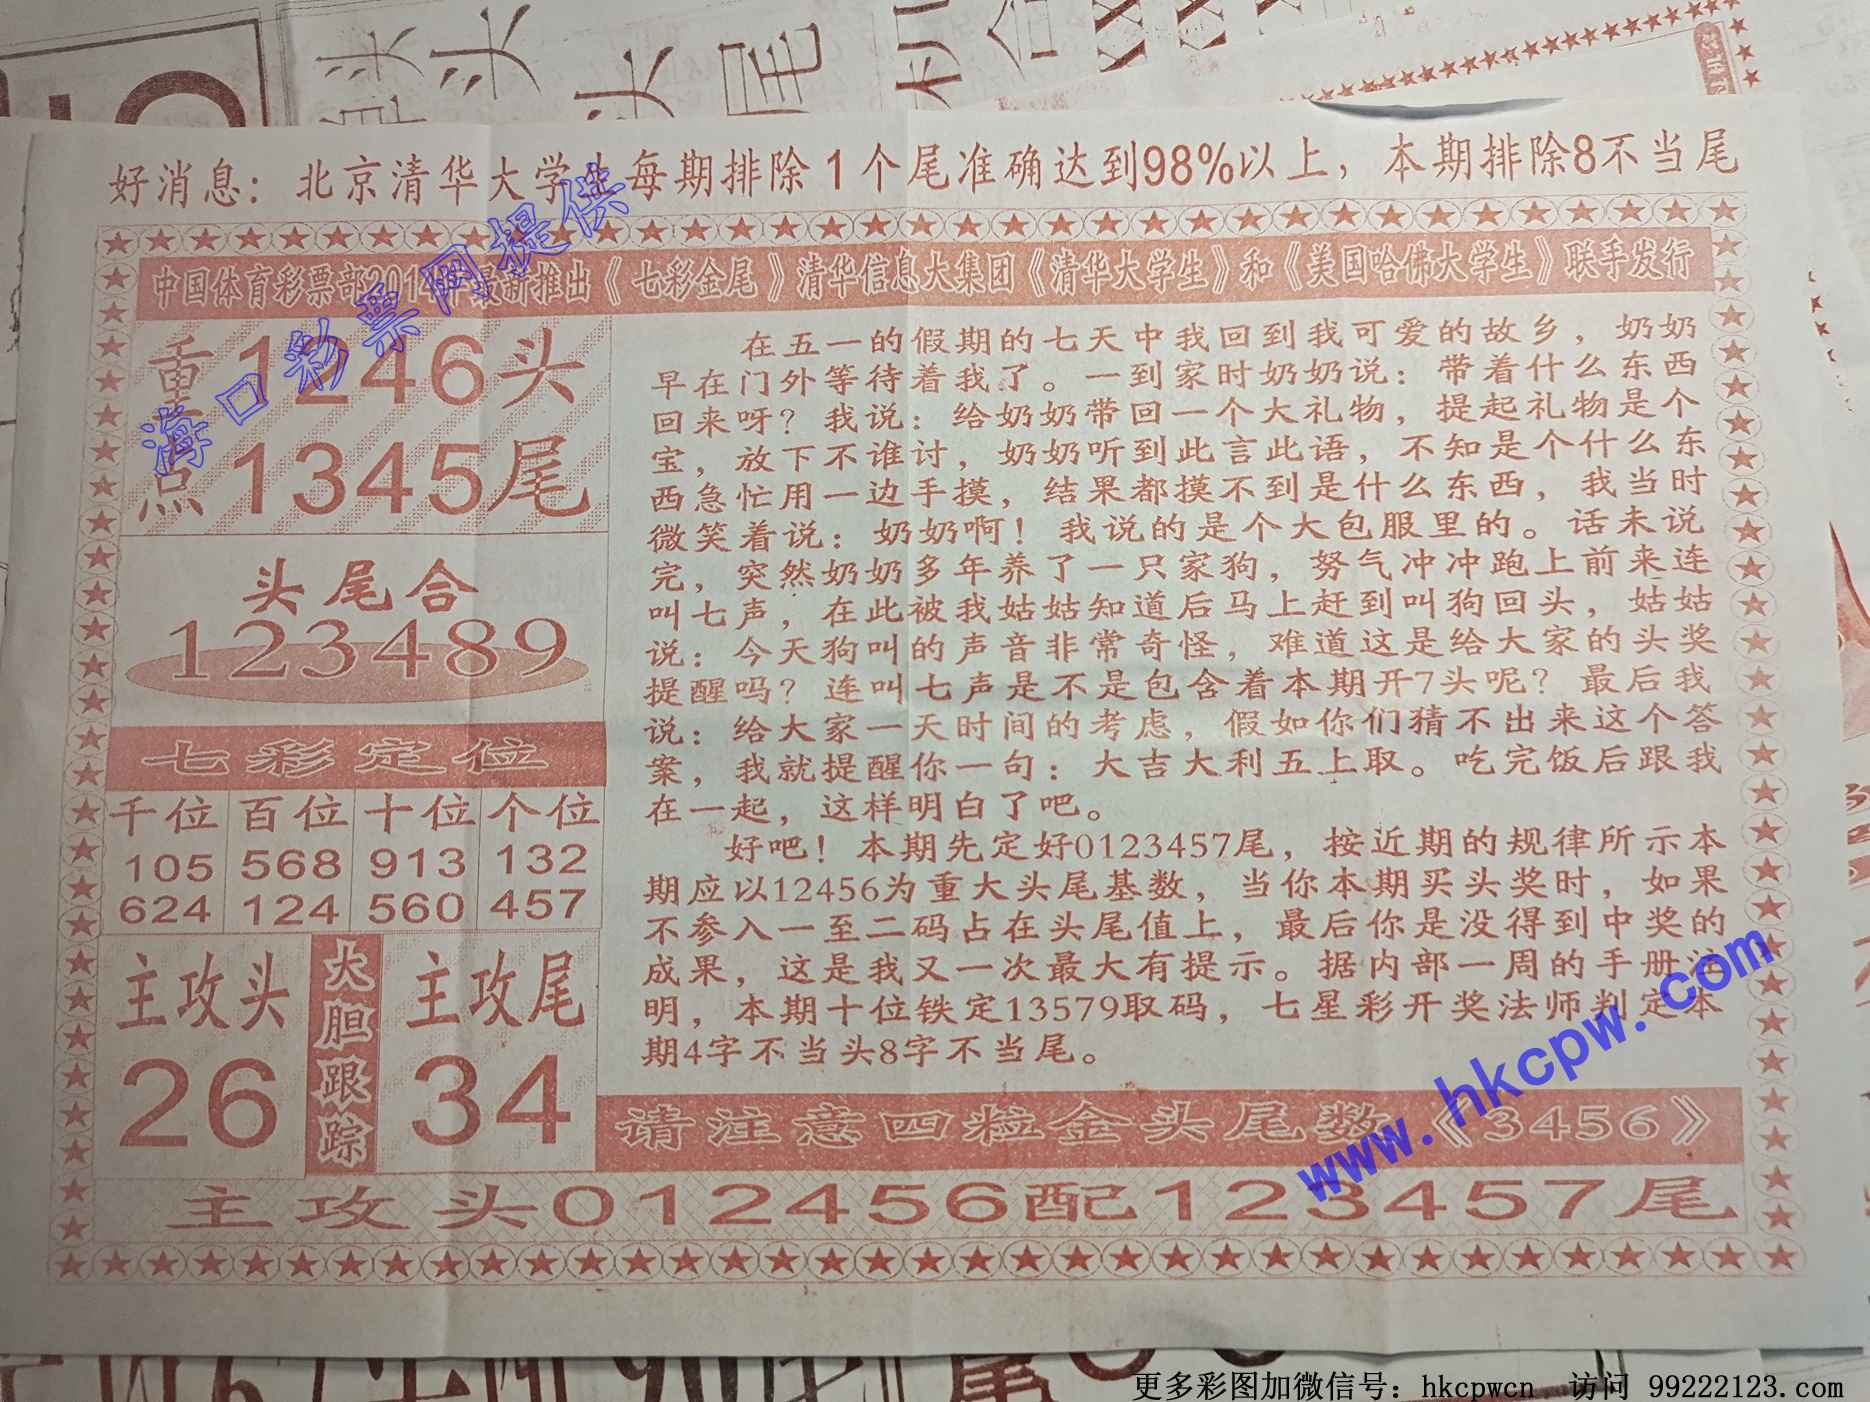 好消息：北京清华大学生每期排除1个尾准确达到98%以上，本期排除8不当尾
中国体育彩票部201 最新推出《七彩金尾》清华信息大集团《清华大学生》和《美国哈佛大学生》联手发行
海口彩票网提供
重 1246头
点 1345尾
头尾合
123489
七彩定位
千位 百位 十位 个位
105 568 913 132
624 124 560 457
主攻头
26
大胆跟踪
主攻尾
34
在五一的假期的七天中我回到我可爱的故乡，奶奶
早在门外等待着我了。一到家时奶奶说：带着什么东西
回来呀？我说：给奶奶带回一个大礼物，提起礼物是个
宝，放下不谁讨，奶奶听到此言此语，不知是个什么东
西急忙用一边手摸，结果都摸不到是什么东西，我当时
微笑着说：奶奶啊！我说的是个大包服里的。话未说
完，突然奶奶多年养了一只家狗，努气冲冲跑上前来连
叫七声，在此被我姑姑知道后马上赶到叫狗回头，姑姑
说：今天狗叫的声音非常奇怪，难道这是给大家的头奖
提醒吗？连叫七声是不是包含着本期开7头呢？最后我
说：给大家一天时间的考虑，假如你们猜不出来这个答
案，我就提醒你一句：大吉大利五上取。吃完饭后跟我
在一起，这样明白了吧。
好吧！本期先定好0123457尾，按近期的规律所示本
期应以12456为重大头尾基数，当你本期买头奖时，如果
不参入一至二码占在头尾值上，最后你是没得到中奖的
成果，这是我又一次最大有提示。据内部一周的手册注
明，本期十位铁定13579取码，七星彩开奖法师判定本
期4字不当头8字不当尾。
www.hkcpw.com
请注意四粒金头尾数《3456》
主攻头012456配123457尾
更多彩图加微信号：hkcpwcn 访问 99222123.com